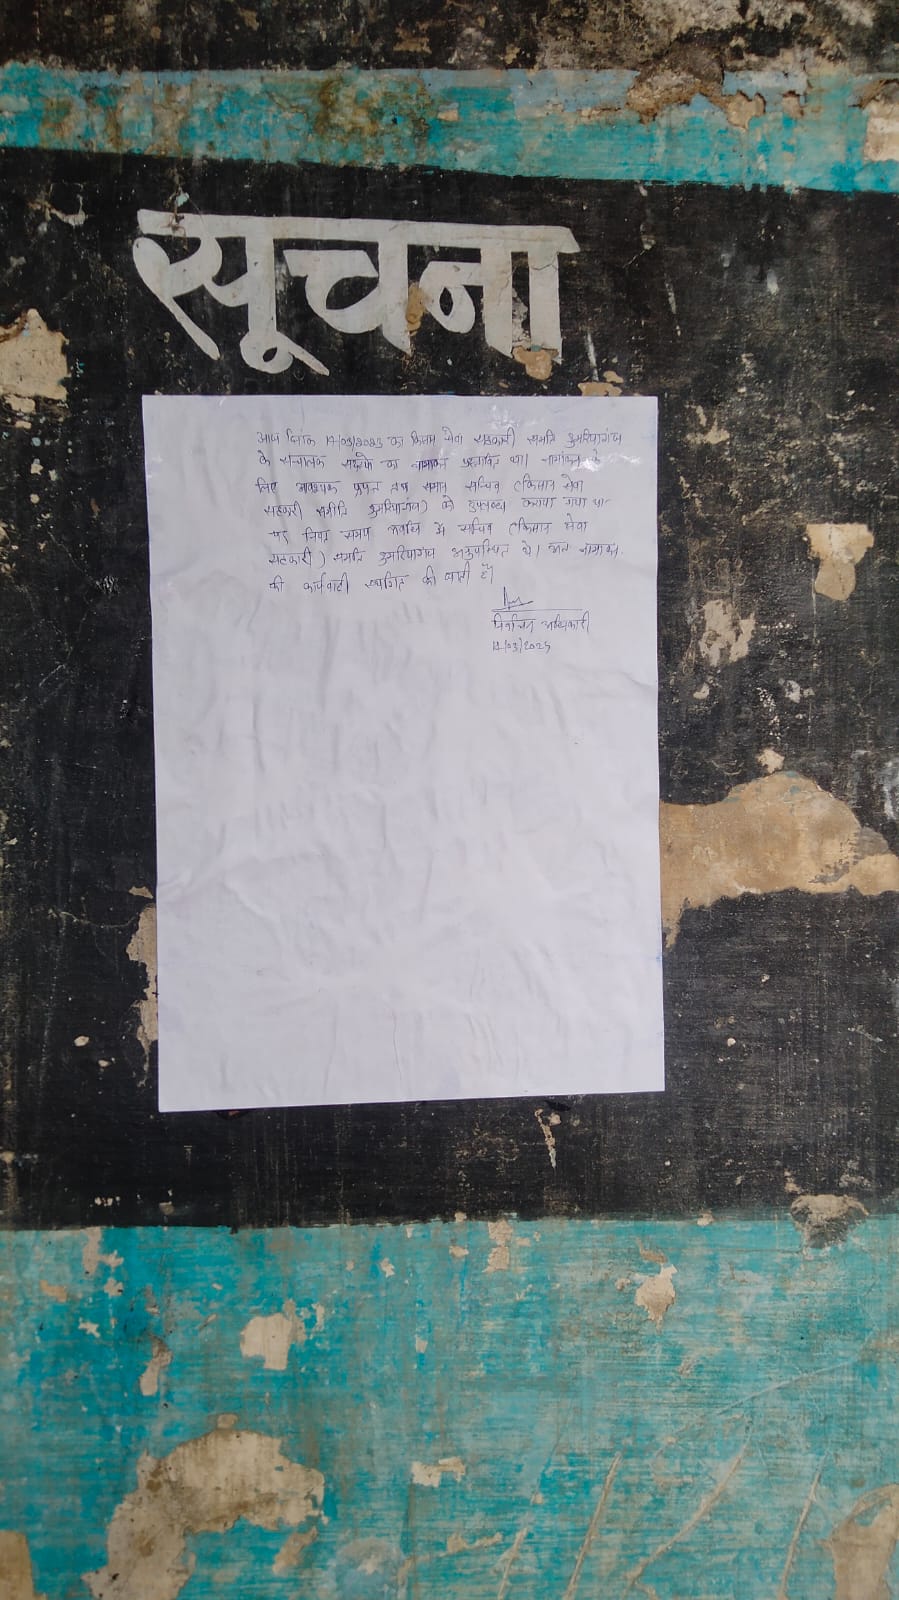 सूचना
आज दिनांक 14/03/2025 को किसान सेवा सहकारी समिति डुमरियागंज
के संचालक सदस्यो का नामांकन प्रस्तावित था। नामांकन के
लिए आवश्यक प्रपत्र सचिव (किसान सेवा
सहकारी समिति डुमरियागंज) को उपलब्ध कराया गया था
पर नियत समय अवधि में सचिव (किसान सेवा
सहकारी) समिति डुमरियागंज अनुपस्थित थे। अतः नामांकन
की कार्यवाही स्थगित की जाती है।
निर्वाचन अधिकारी
14/03/2025